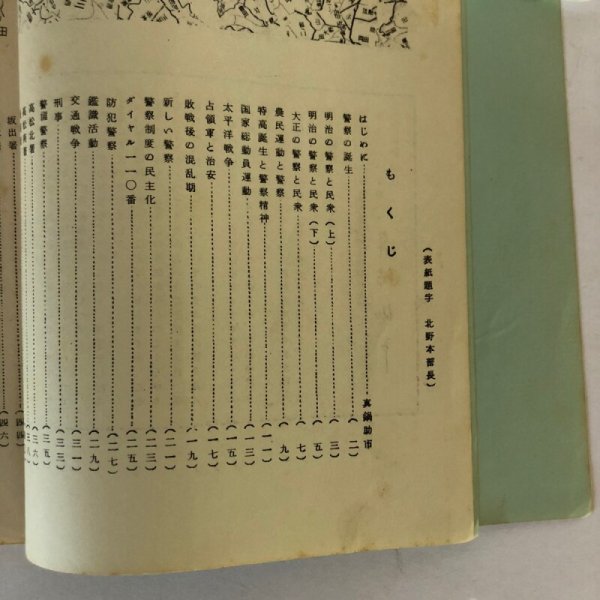 もくじ
（表紙題字　北野本部長）
はじめに……真鍋助市
警察の誕生……（二）
明治の警察と民衆（上）……（三）
明治の警察と民衆（下）……（五）
大正の警察と民衆……（七）
農民運動と警察……（九）
特高誕生と警察精神……（一一）
国家総動員運動……（一三）
太平洋戦争……（一五）
占領軍と治安……（一七）
敗戦後の混乱期……（一九）
新しい警察……（二一）
警察制度の民主化……（二三）
ダイヤル一一〇番……（二五）
防犯警察……（二七）
鑑識活動……（二九）
交通戦争……（三一）
刑事……（三三）
警備警察……（三五）
高松北署……（三六）
坂出署
（四六）
田